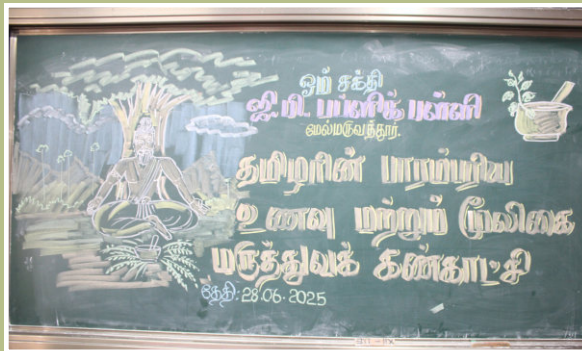 ஓம் சக்தி
ஜி.பி. பப்ளிக் பள்ளி
மேல்மருவத்தூர்.
தமிழரின் பாரம்பரிய
உணவு மற்றும் மூலிகை
மருத்துவக் கண்காட்சி
தேதி: 28.06.2025